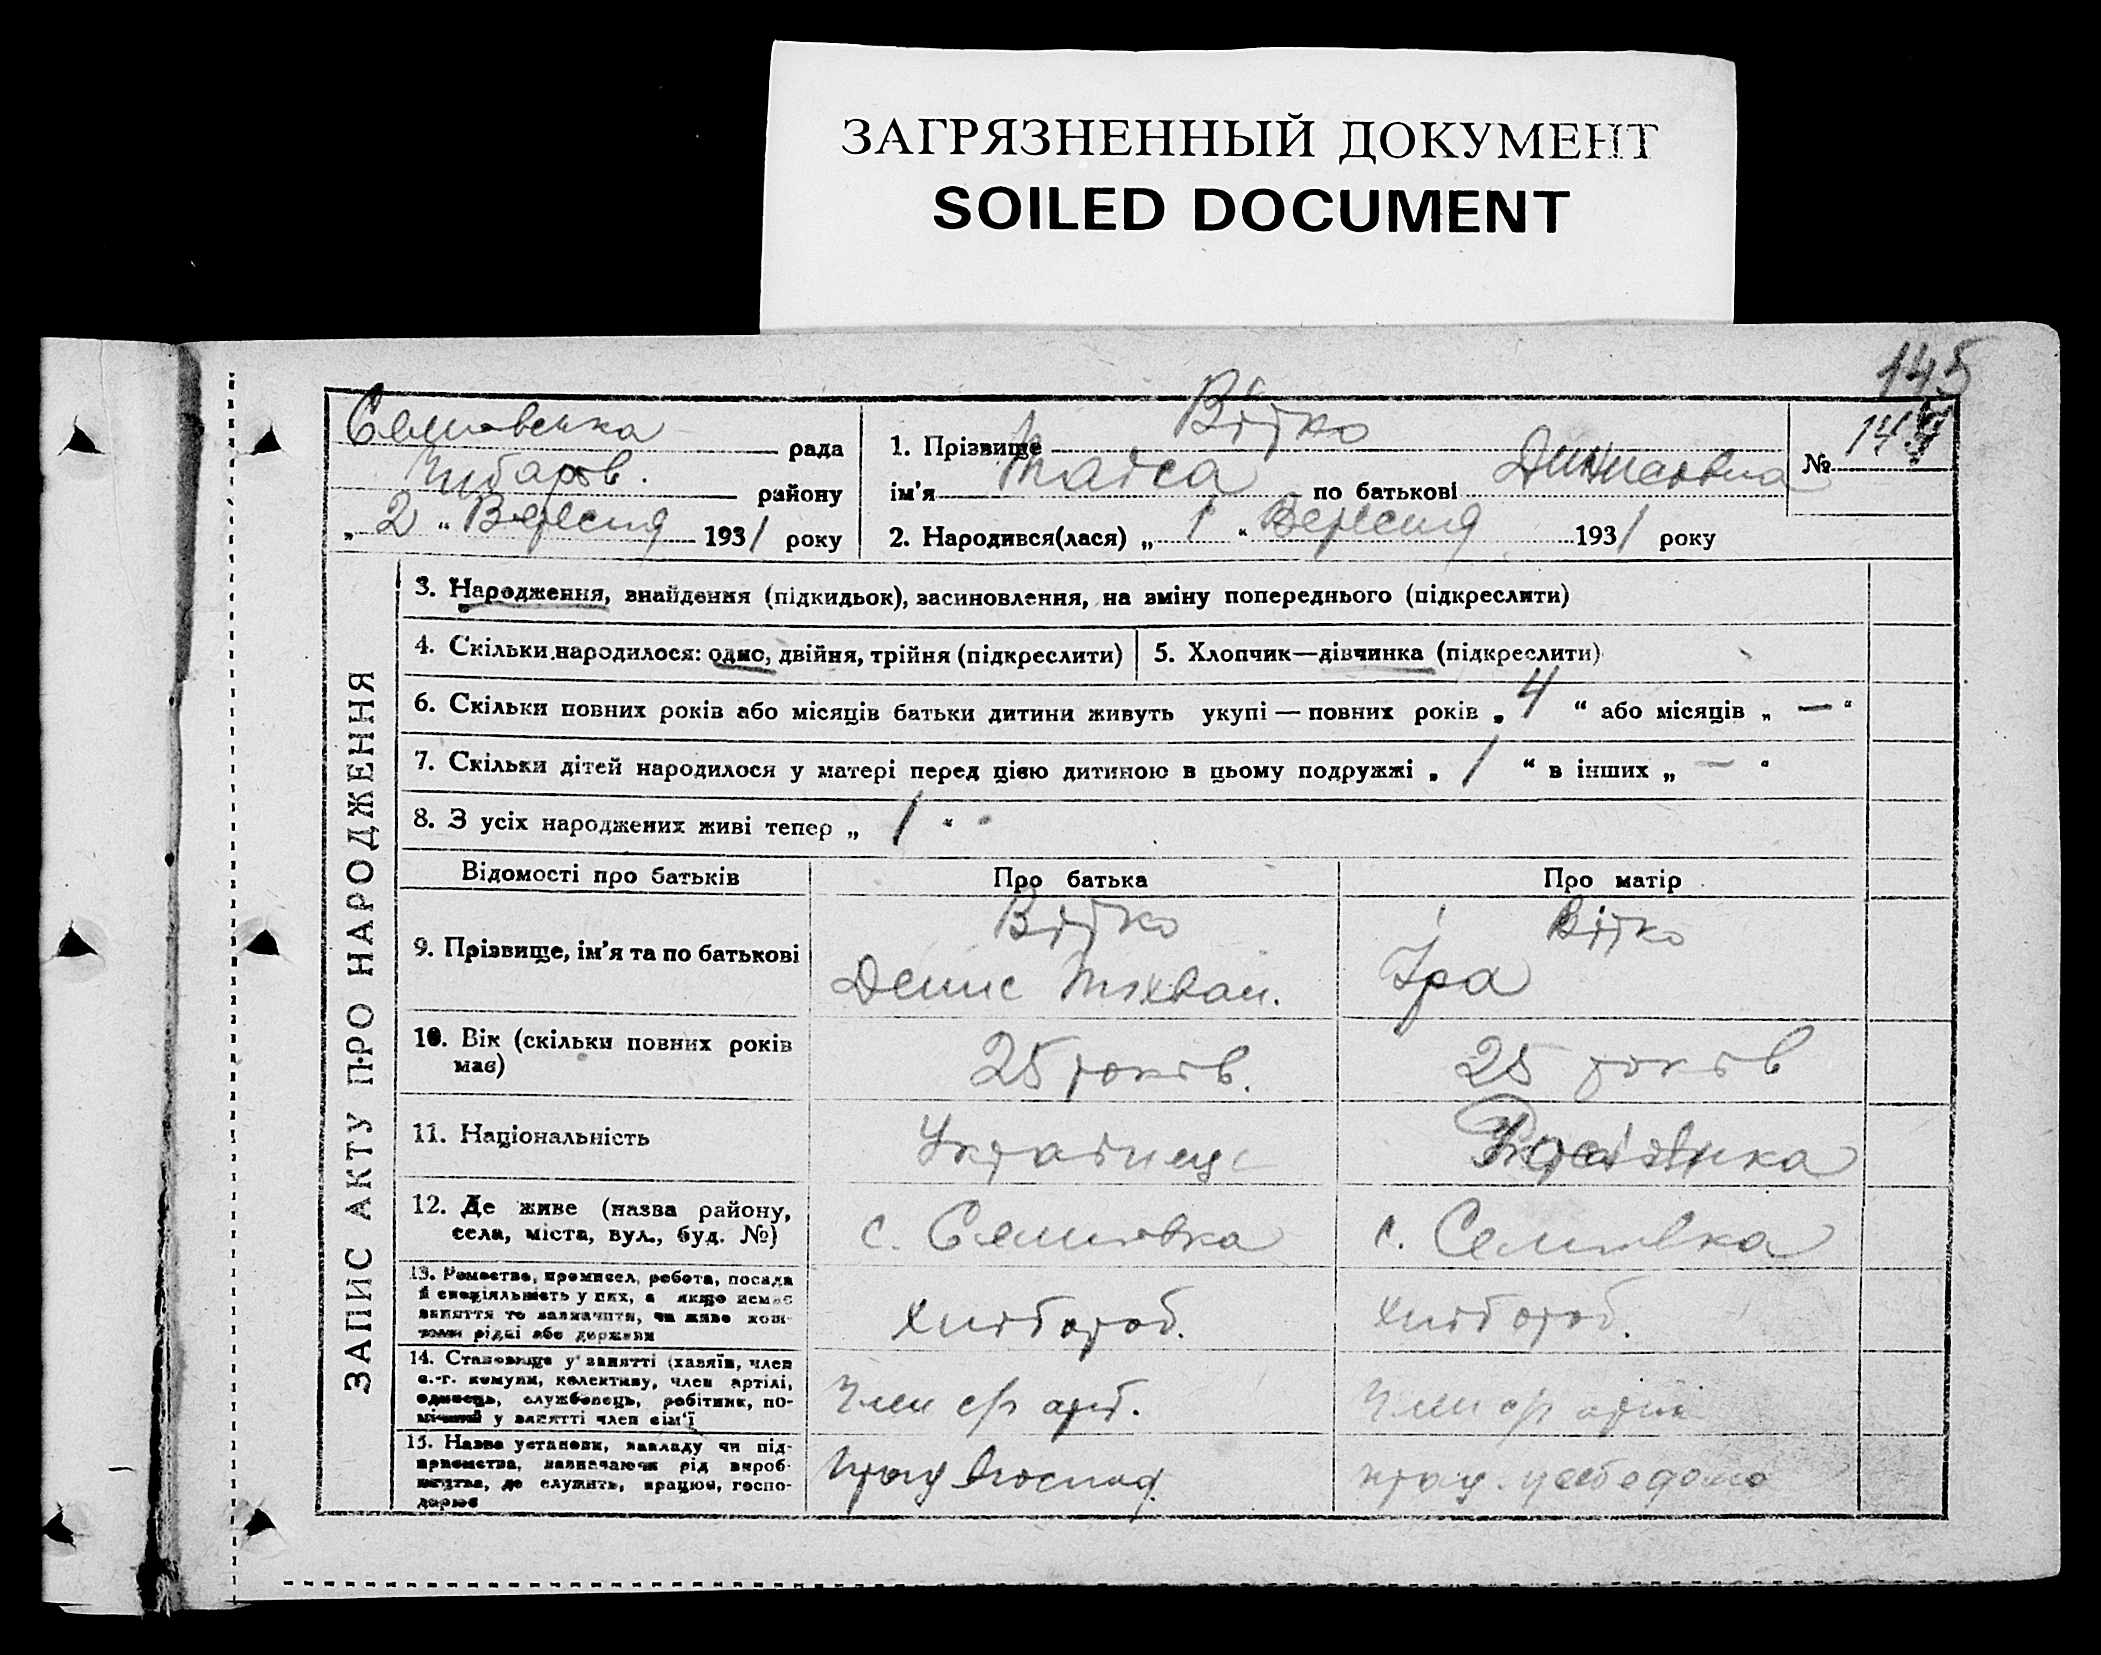 ЗАГРЯЗНЕННЫЙ ДОКУМЕНТ
SOILED DOCUMENT
145
Семовська рада
Чубаров. району
„ 2 “ Вересня 1931 року
1. Прізвище Вітко
ім'я Таїса по батькові Динисовна
№ 144
2. Народився(лася) „ 1 “ Вересня 1931 року
ЗАПИС АКТУ ПРО НАРОДЖЕННЯ
3. Народження, знайдення (підкидьок), засиновлення, на зміну попереднього (підкреслити)
4. Скільки народилося: одно, двійня, трійня (підкреслити)
5. Хлопчик—дівчинка (підкреслити)
6. Скільки повних років або місяців батьки дитини живуть укупі — повних років „ 4 “ або місяців „ — “
7. Скільки дітей народилося у матері перед цією дитиною в цьому подружжі „ 1 “ в інших „ — “
8. З усіх народжених живі тепер „ 1 “
Відомості про батьків Про батька Про матір
9. Прізвище, ім'я та по батькові
Вітко
Денис
Вітко
Іра
10. Вік (скільки повних років
має)
25 років.
25 років
11. Національність
Українець
12. Де живе (назва району,
села, міста, вул., буд. №)
с. Семовка
с. Семовка
13. Ремество, промисел, робота, посада
й спеціяльність у них, а якщо немає
заняття то зазначити, чи живе кош-
тами рідні або держави
Хлібороб.
Хлібороб.
14. Становище у занятті (хазяїн, член
с.-г. комуни, колективу, член артілі,
одинець, службовець, робітник, по-
мічний у занятті член сім'ї
Член с/г арт.
Член с/г арті
15. Назва установи, закладу чи під-
приємства, зазначаючи рід вироб-
ництва, де служить, працює, госпо-
дарює
прац.